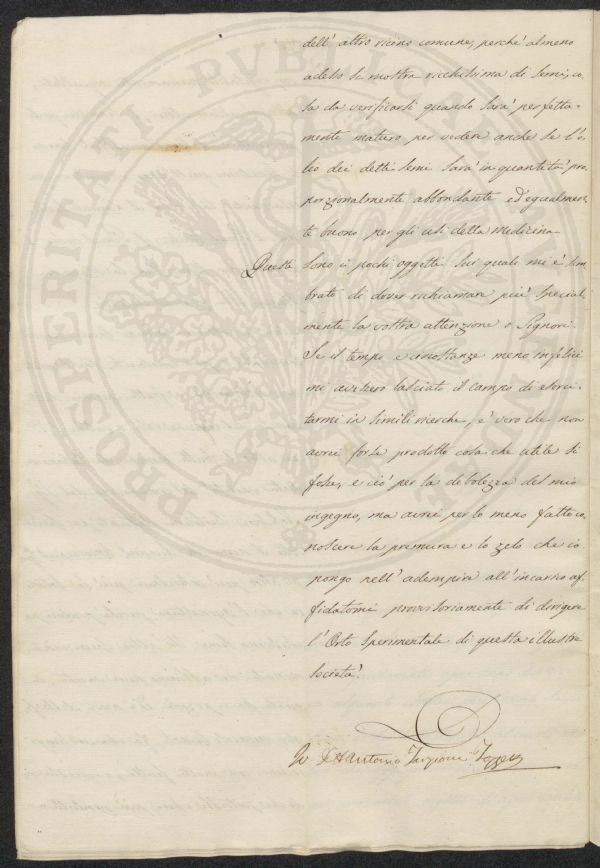 dell' altro vicino comune, perchè almeno
adesso si mostra ricchissima di semi; co,
sa da verificarsi quando sarà perfetta-
mente maturo, per vedere anche se l'o,
lio dei detti semi sarà in quantità pro,
porzionalmente abbondante ed egualmen,
te buono per gli usi della medicina.
Questi sono i pochi oggetti sui quali mi è sem
brato di dover richiamare più special,
mente la vostra attenzione o Signori.
Se il tempo e circostanze meno infelici
mi avessero lasciato il campo di eserci,
tarmi in simili ricerche, è vero che non
avrei forse prodotto cosa che utile si
fosse, e ciò per la debolezza del mio
ingegno, ma avrei per lo meno fatto co,
noscere la premura e lo zelo che io
pongo nell' adempire all' incarico af,
fidatomi provvisoriamente di dirigere
l'Orto sperimentale di questa illustre
società.
Antonio Targioni Tozzetti
PROSPERITATI PUBLICAE